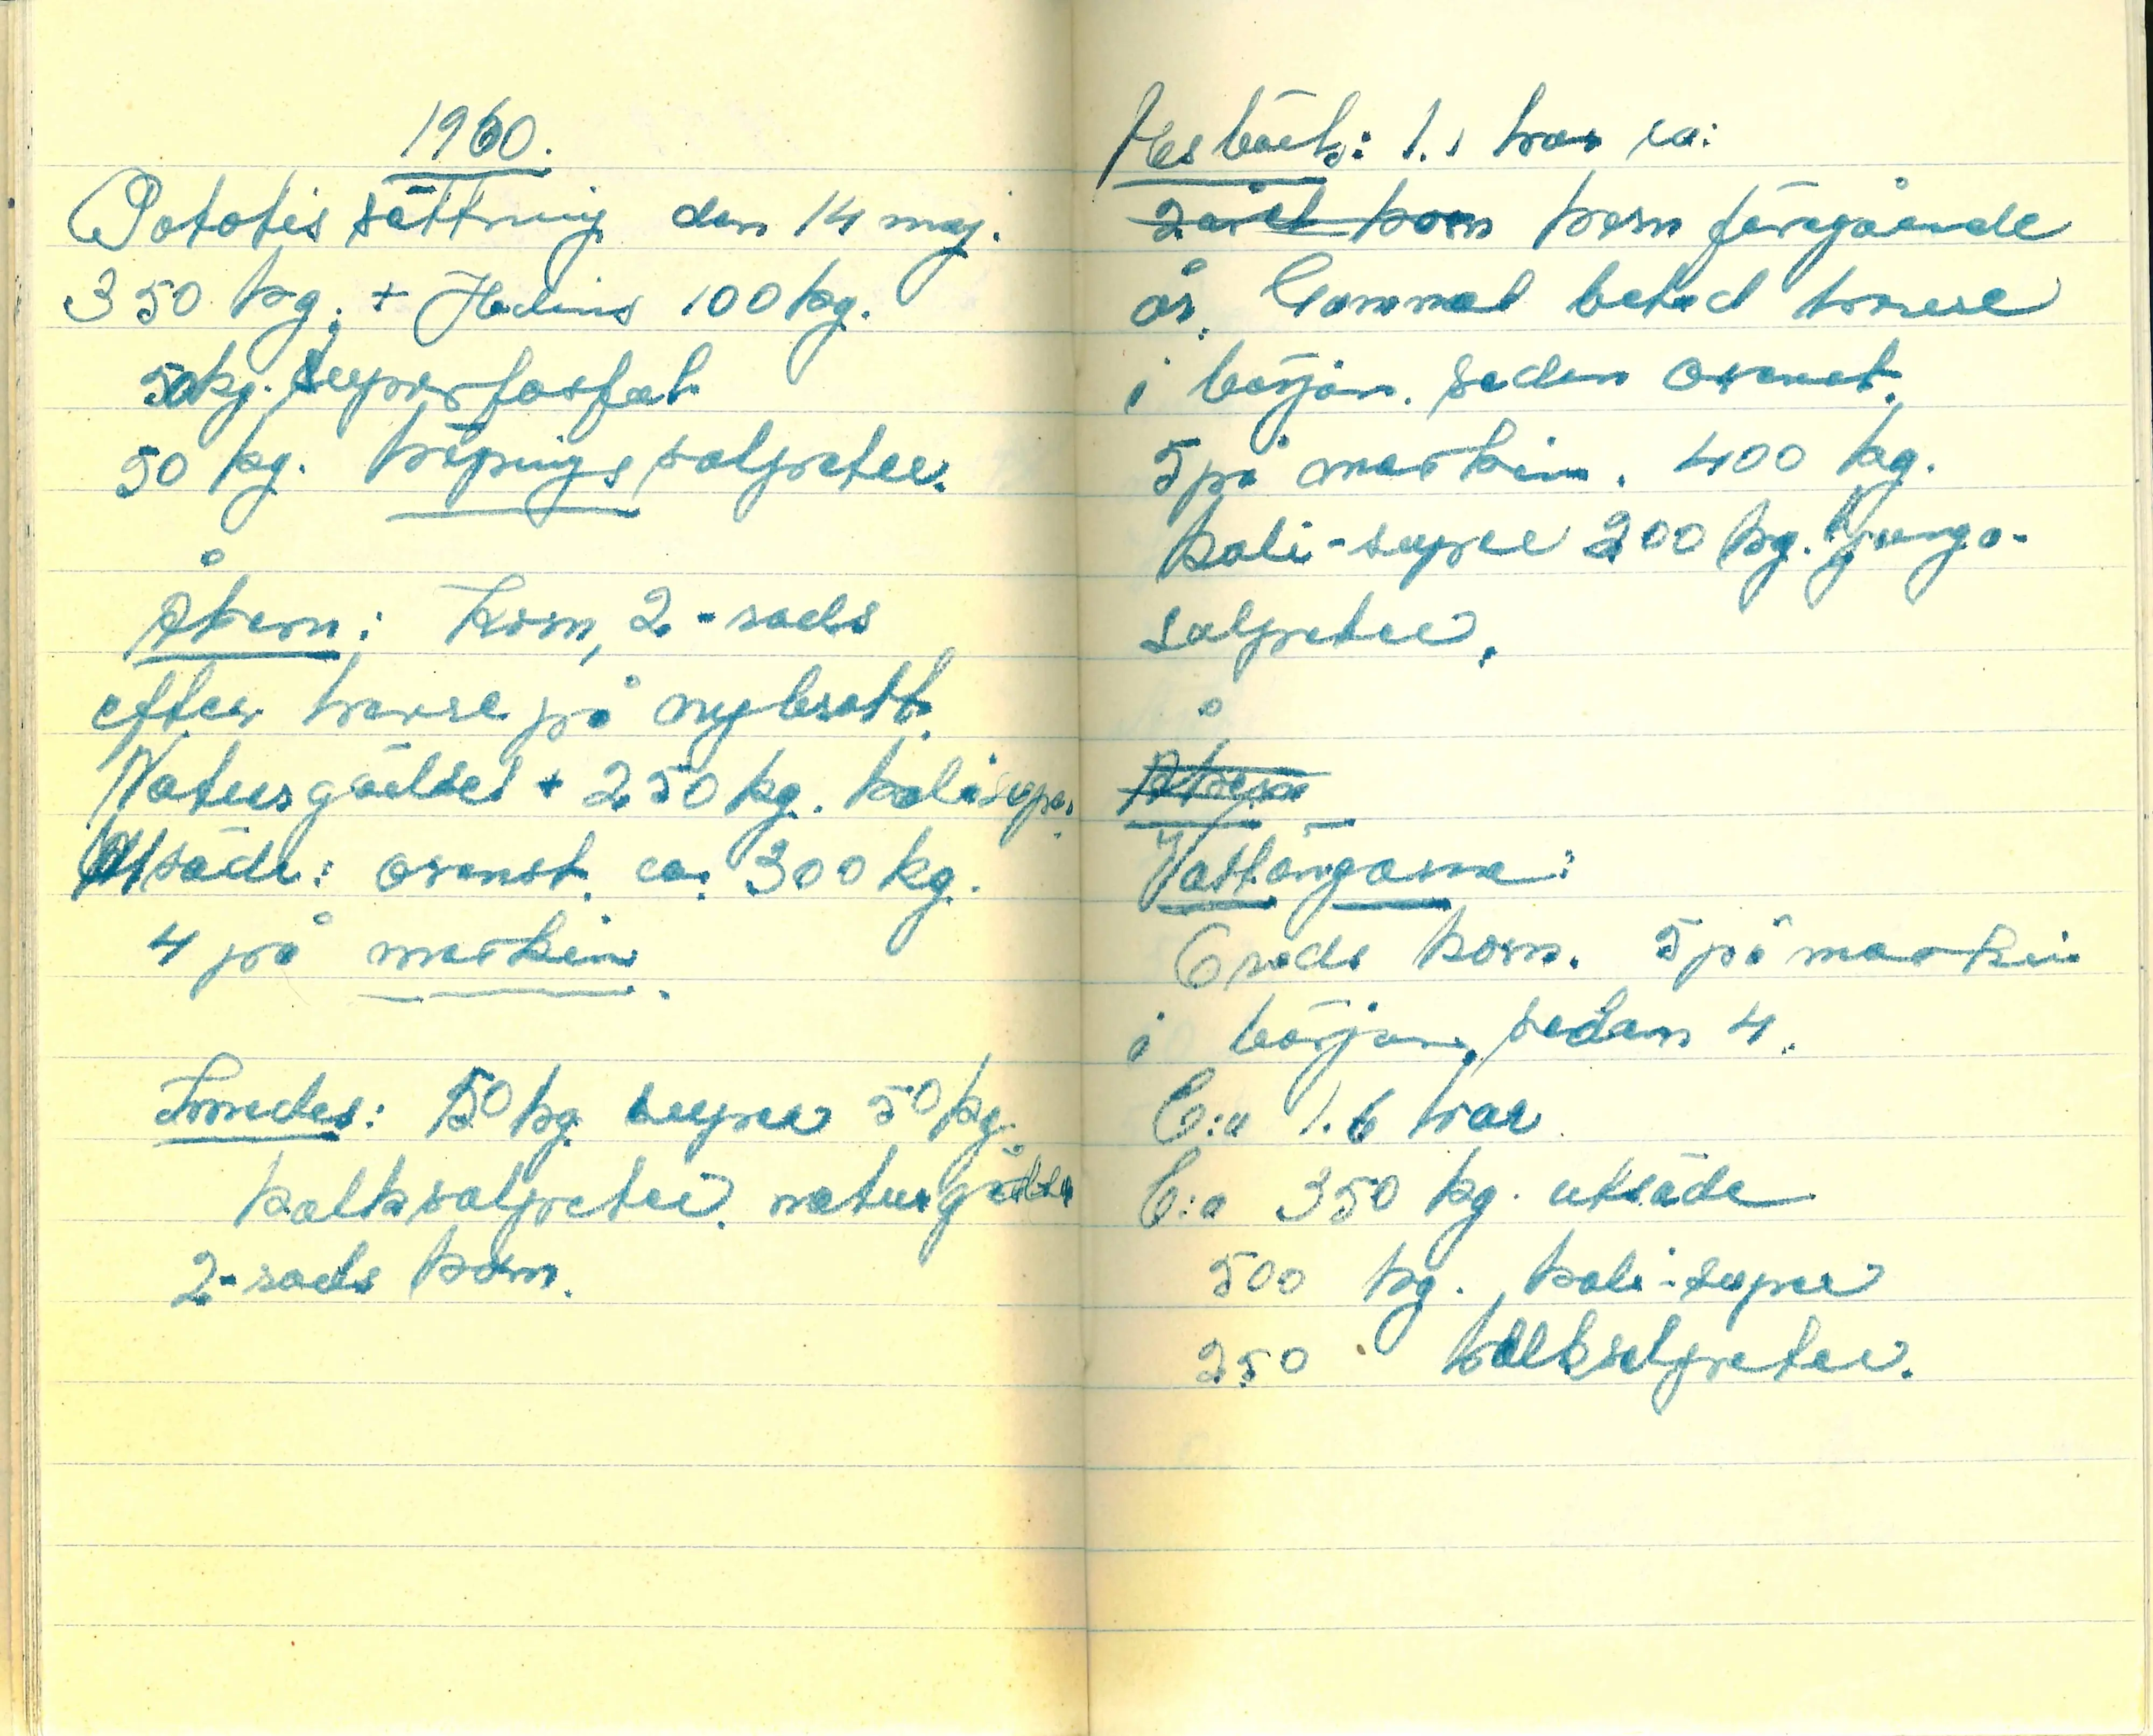 1960.
Potatissättning den 14 maj.
350 kg. + Hedins 100 kg.
50 kg. superfosfat
50 kg. köpings salpeter.
Åkern: Korn, 2-rads
efter korn på nybrott.
Naturgödsel + 250 kg. kalisuper.
Utsäde: orenst. ca. 300 kg.
4 på maskin.
50 kg super 50 kg.
kalksalpeter. naturgödsel
2-rads korn.
1.1 har ca:
2-rad korn korn föregående
år. Gammal betad
i början. sedan orenset.
5 på maskin. 400 kg.
kali-super 200 kg. ljunga-
salpeter.
Åkern
Västängarna:
6 rads korn. 5 på maskin
i början, sedan 4.
C:a 1.6 har
C:a 350 kg. utsäde
500 kg. kali-super
250 kalksalpeter.